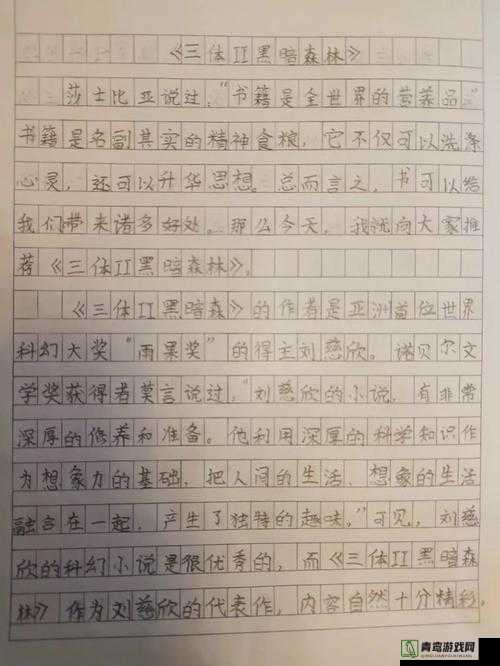 《三体II黑暗森林》
莎士比亚说过,"书籍是全世界的营养品。"
书籍是名副其实的精神食粮,它不仅可以洗涤
心灵,还可以升华思想。总而言之,书可以给
我们带来诸多好处。那么今天,我就向大家推
荐《三体II黑暗森林》。
《三体II黑暗森》的作者是亚洲首位世界
科幻大奖"雨果奖"的得主刘慈欣。诺贝尔文
学奖获得者莫言说过,"刘慈欣的小说,有非常
深厚的修养和准备。他利用深厚的科学知识作
为想象力的基础,把人间的生活、想象的生活
融合在一起,产生了独特的趣味。"可见,刘慈
欣的科幻小说是很优秀的,而《三体II黑暗森
林》作为刘慈欣的代表作,内容自然十分精彩。
青鸾游戏网